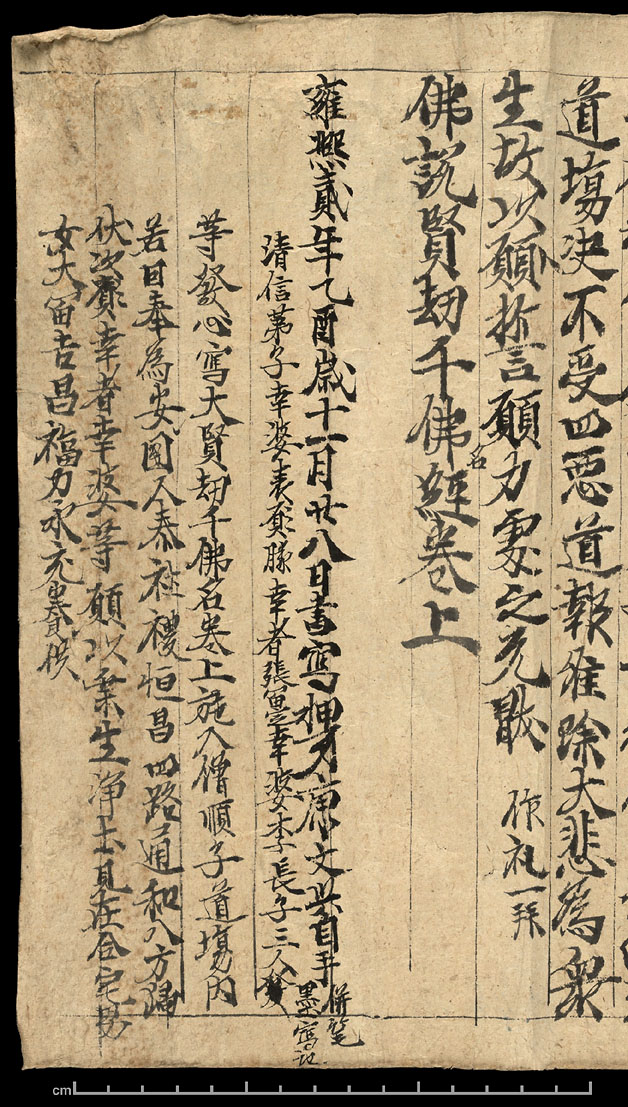 道場決不受四惡道報唯除大悲為衆
生故以願哲言願力處之兇戢 作礼一拜
佛說賢劫千佛名經卷上
雍熙貳年乙酉歲十一月廿八日書寫押牙康文興自手併筆墨寫記
清信弟子幸婆表願勝幸者張富定幸婆李長子三人等
等發心寫大賢劫千佛名卷上施入僧順子道場內
若因奉為安國人泰社稷恒昌四路通和八方歸
伏次願幸者幸婆等願以業生淨土見在合宅男
女大富吉昌福力永充供養